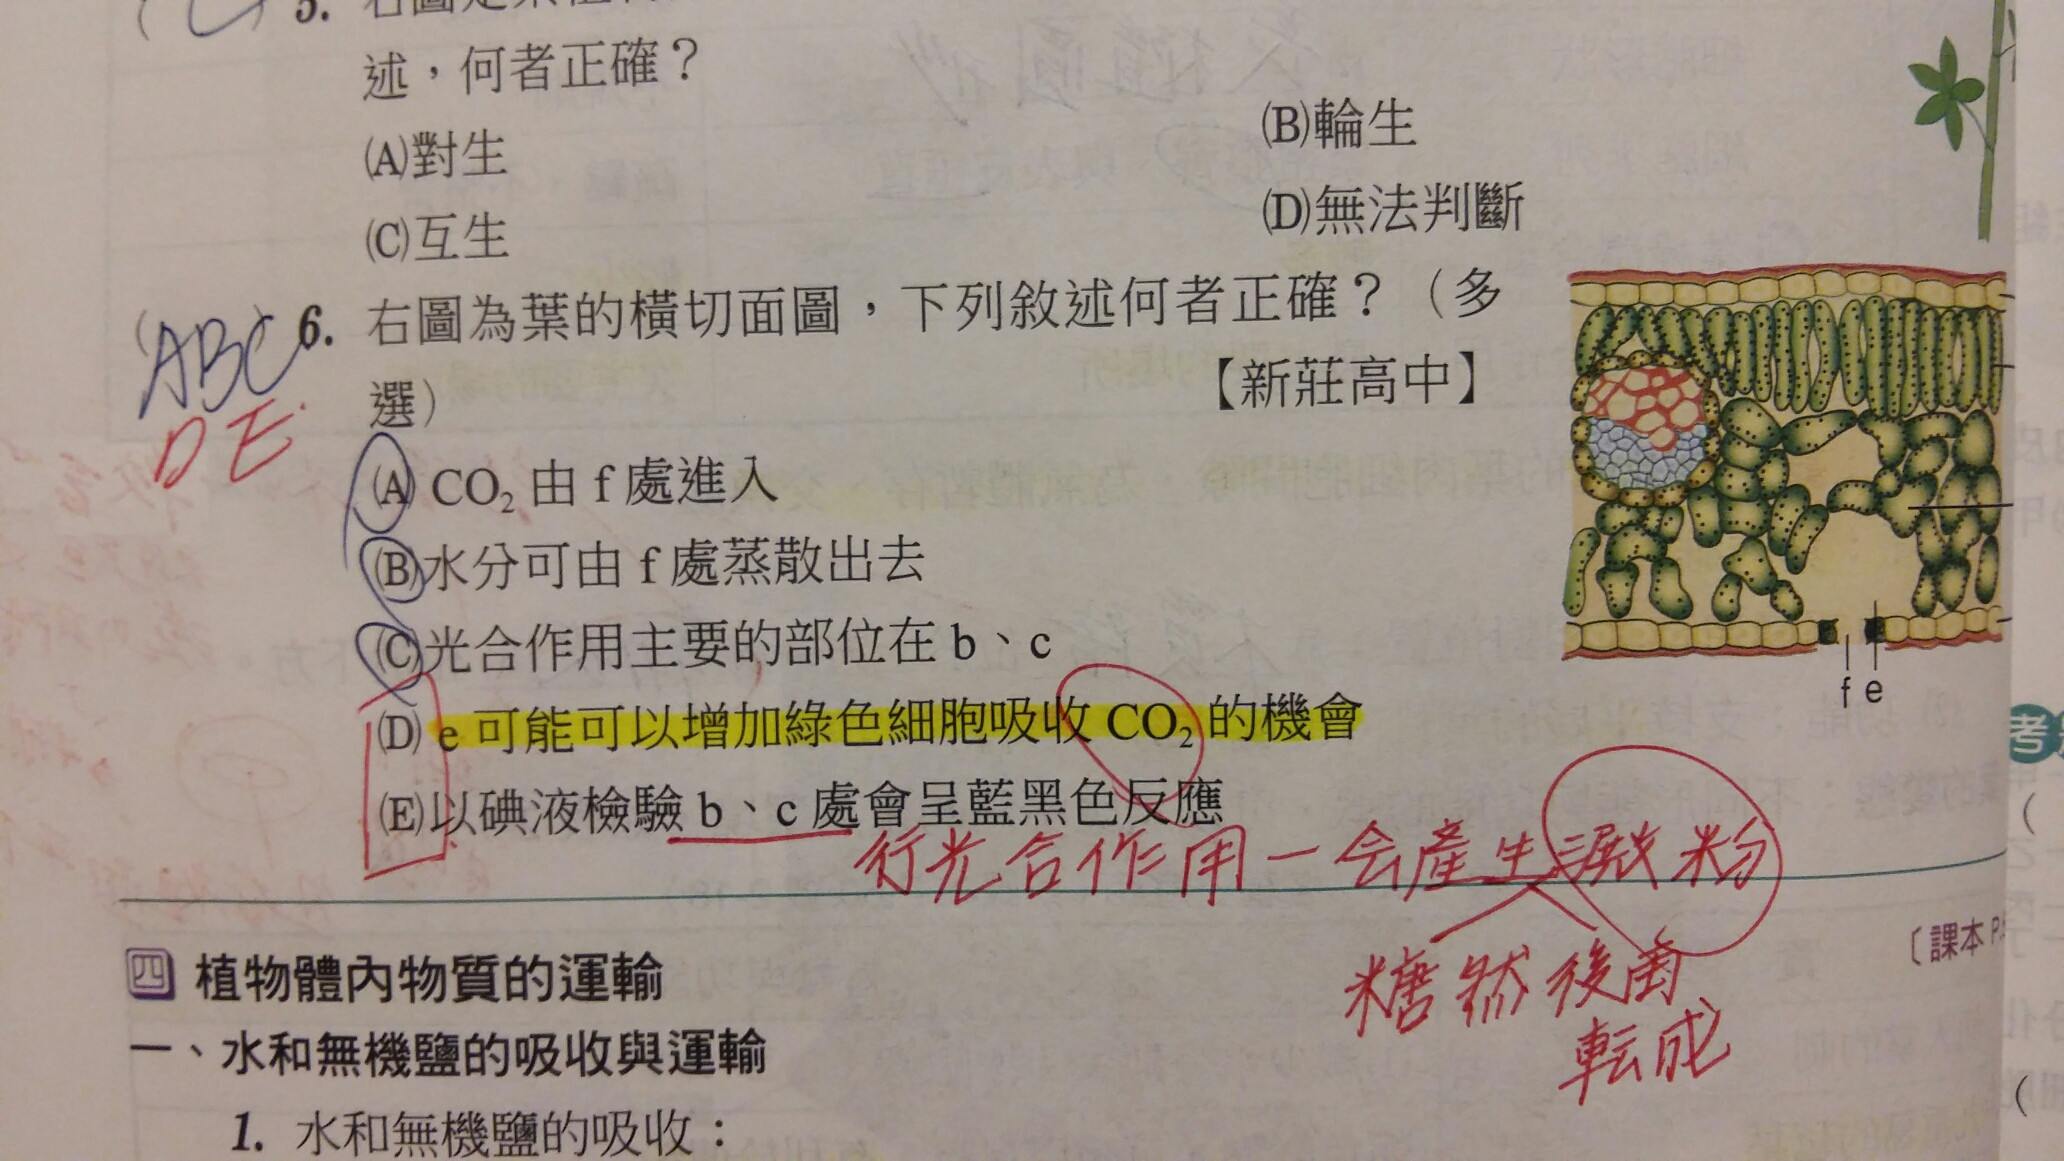 5.
述，何者正確？
(A)對生
(B)輪生
(C)互生
(D)無法判斷
ABC
DE
6. 右圖為葉的橫切面圖，下列敘述何者正確？（多
選）
【新莊高中】
(A) CO₂ 由 f 處進入
(B)水分可由 f 處蒸散出去
(C)光合作用主要的部位在 b、c
(D) e 可能可以增加綠色細胞吸收 CO₂ 的機會
(E)以碘液檢驗 b、c 處會呈藍黑色反應
f e
行光合作用一会產生澱粉
糖然後再
転成
四 植物體內物質的運輸
〔課本 P
一、水和無機鹽的吸收與運輸
1. 水和無機鹽的吸收：
考